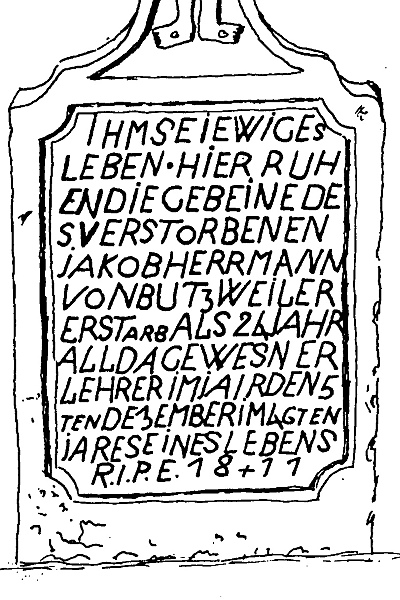 IHM SEI EWIGES
LEBEN · HIER RUH
EN DIE GEBEINE DE
S. VERSTORBENEN
JAKOB HERRMANN
VON BUTZWEILER
ER STARB ALS 24 JAHR
ALLDA GEWESNER
LEHRER IM JAIR DEN 5
TEN DEZEMBER IM 46 TEN
JARE SEINES LEBENS
R.I.P.E. 18+11